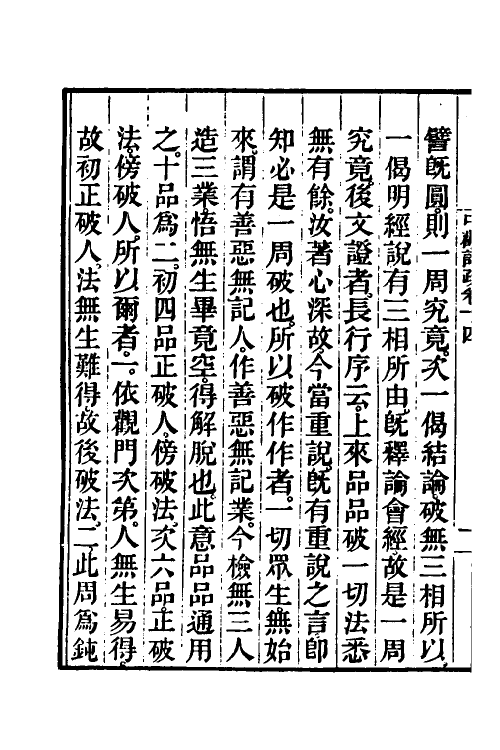 譬旣圓則一周究竟次一偈結論破無三相所以
一偈明經說有三相所由旣釋論會經故是一周
究竟後文證者長行序云上來品品破一切法悉
無有餘汝著心深故今當重說旣有重說之言卽
知必是一周破也所以破作作者一切眾生無始
來謂有善惡無記人作善惡無記業今檢無三人
造三業悟無生畢竟空得解脫也此意品品通用
之十品爲二初四品正破人傍破法次六品正破
法傍破人所以爾者一依觀門次第人無生易得
故初正破人法無生難得故後破法二此周爲鈍